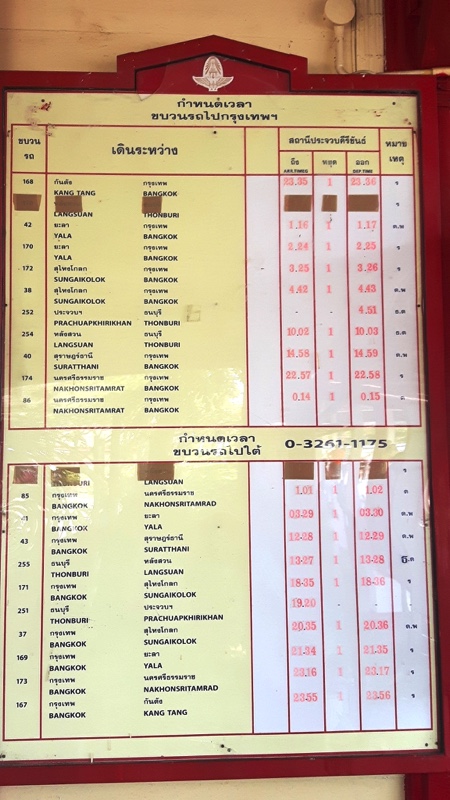 กำหนดเวลา
ขบวนรถไปกรุงเทพฯ
ขบวนรถ เดินระหว่าง สถานีประจวบคีรีขันธ์ หมายเหตุ
ถึง หยุด ออก
ARR.TIMES DEP.TIME
168 กันตัง กรุงเทพ 23.35 1 23.36 ร
KANG TANG BANGKOK
ร
LANGSUAN THONBURI
42 ยะลา กรุงเทพ 1.16 1 1.17 ด.พ
YALA BANGKOK
170 ยะลา กรุงเทพ 2.24 1 2.25 ร
YALA BANGKOK
172 สุไหงโกลก กรุงเทพ 3.25 1 3.26 ร
SUNGAIKOLOK BANGKOK
38 สุไหงโกลก กรุงเทพ 4.42 1 4.43 ด.พ
SUNGAIKOLOK BANGKOK
252 ประจวบฯ ธนบุรี - - 4.51 ธ.ด
PRACHUAPKHIRIKHAN THONBURI
254 หลังสวน ธนบุรี 10.02 1 10.03 ธ.ด
LANGSUAN THONBURI
40 สุราษฎร์ธานี กรุงเทพ 14.58 1 14.59 ด.พ
SURATTHANI BANGKOK
174 นครศรีธรรมราช กรุงเทพ 22.57 1 22.58 ร
NAKHONSRITAMRAT BANGKOK
86 นครศรีธรรมราช กรุงเทพ 0.14 1 0.15 ด
NAKHONSRITAMRAT BANGKOK
กำหนดเวลา
ขบวนรถไปใต้ 0-3261-1175
ร
THONBURI LANGSUAN
85 กรุงเทพ นครศรีธรรมราช 1.01 1 1.02 ด
BANGKOK NAKHONSRITAMRAD
41 กรุงเทพ ยะลา 03.29 1 03.30 ด.พ
BANGKOK YALA
43 กรุงเทพ สุราษฎร์ธานี 12-28 1 12-29 ด.พ
BANGKOK SURATTHANI
255 ธนบุรี หลังสวน 13-27 1 13-28 ธ.ด
THONBURI LANGSUAN
171 กรุงเทพ สุไหงโกลก 18-35 1 18-36 ร
BANGKOK SUNGAIKOLOK
251 ธนบุรี ประจวบฯ 19.20 - -
THONBURI PRACHUAPKHIRIKHAN
37 กรุงเทพ สุไหงโกลก 20.35 1 20.36 ด.พ
BANGKOK SUNGAIKOLOK
169 กรุงเทพ ยะลา 21.34 1 21.35 ร
BANGKOK YALA
173 กรุงเทพ นครศรีธรรมราช 23.16 1 23.17 ร
BANGKOK NAKHONSRITAMRAD
167 กรุงเทพ กันตัง 23.55 1 23.56 ร
BANGKOK KANG TANG